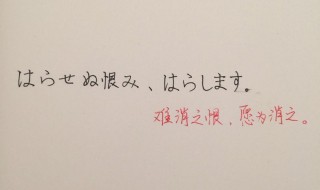 はらせぬ恨み、はらします。
难消之恨、愿为消之。